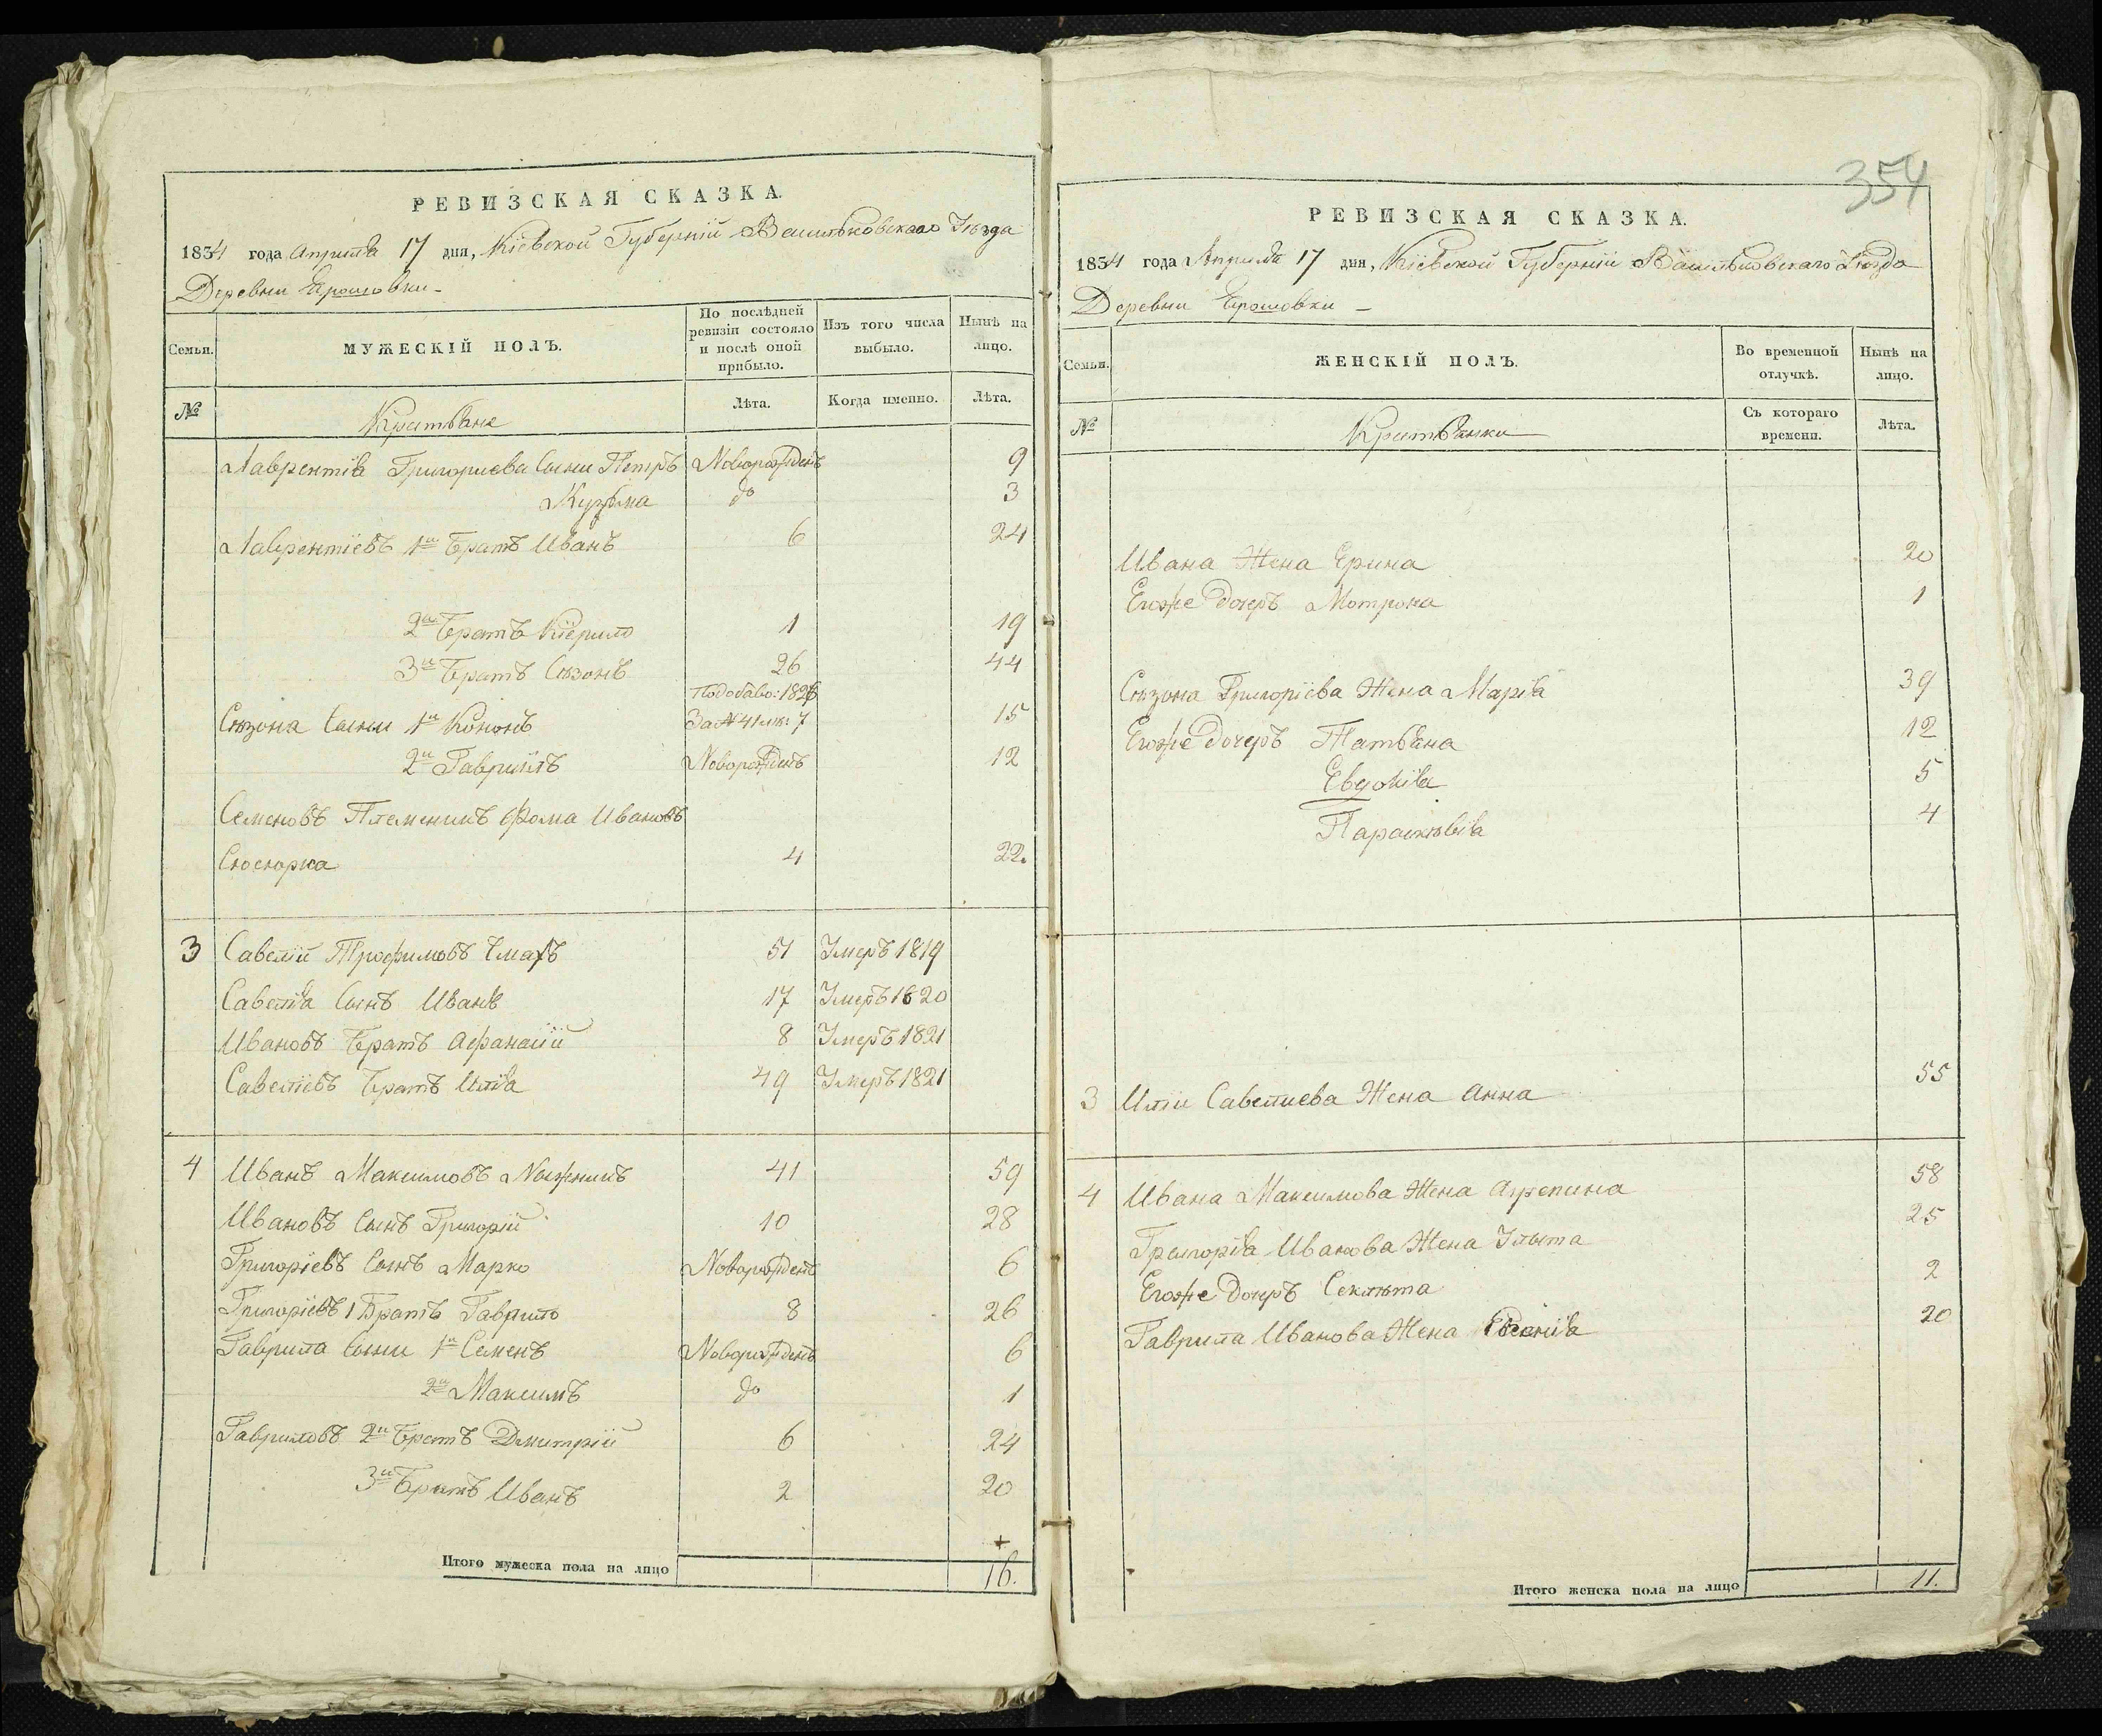 РЕВИЗСКАЯ СКАЗКА.
1834 года Апреля 17 дня, Кіевской Губерніи Васильковскаго Уѣзда
Деревни Ерошовки
Семьи.
МУЖЕСКІЙ ПОЛЪ.
По послѣдней ревизіи состояло и послѣ оной прибыло.
Изъ того числа выбыло.
Нынѣ на лицо.
№
Крестьяне
Лѣта.
Когда именно.
Лѣта.
Лаврентія Григориева Сыни Петръ Новорожденъ 9
Кузьма до 3
Лаврентіевъ 1й Братъ Иванъ 6 24
2й Братъ Кирило 1 19
3й Братъ Сазонъ 26 44
1826
Сазона Сыни 1й Кононъ За № 41 7 15
2й Гавриілъ Новорожденъ 12
Семеновъ Племеникъ Фома Ивановъ
Слюсарка 4 22.
3 Савелій Трофимовъ 51 Умеръ 1819
Савелія Сынъ Иванъ 17 Умеръ 1820
Ивановъ Братъ Афанасій 8 Умеръ 1821
Савеліевъ Братъ Илія 49 Умеръ 1821
4 Иванъ Максимовъ 41 59
Ивановъ Сынъ Григорій 10 28
Григоріевъ Сынъ Марко Новорожденъ 6
Григоріевъ 1 Братъ Гаврило 8 26
Гаврила Сыни 1й Семенъ Новорожденъ 6
2й Максимъ до 1
Гавриловъ 2й Братъ Дмитрій 6 24
3й Братъ Иванъ 2 20
Итого мужеска пола на лицо 16.
354
РЕВИЗСКАЯ СКАЗКА.
1834 года Апреля 17 дня, Кіевской Губерніи Васильковскаго Уѣзда
Деревни Ерошовки
Семьи.
ЖЕНСКІЙ ПОЛЪ.
Во временной отлучкѣ.
Нынѣ на лицо.
№
Крестьянки
Съ котораго времени.
Лѣта.
Ивана Жена Ерина 20
Егоже Дочеръ Мотрона 1
Сазона Григоріева Жена Марія 39
Егоже Дочеръ Татьяна 12
Евдокія 5
Параскѣвія 4
3 Иліи Савелиева Жена Анна 55
4 Ивана Максимова Жена Агрепина 58
Григорія Иванова Жена Ульита 25
Егоже Дочеръ Секлѣта 2
Гаврила Иванова Жена 20
Итого женска пола на лицо 11.